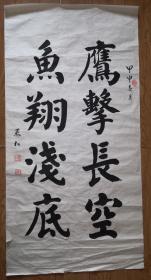 甲申春月
鷹擊長空
魚翔淺底